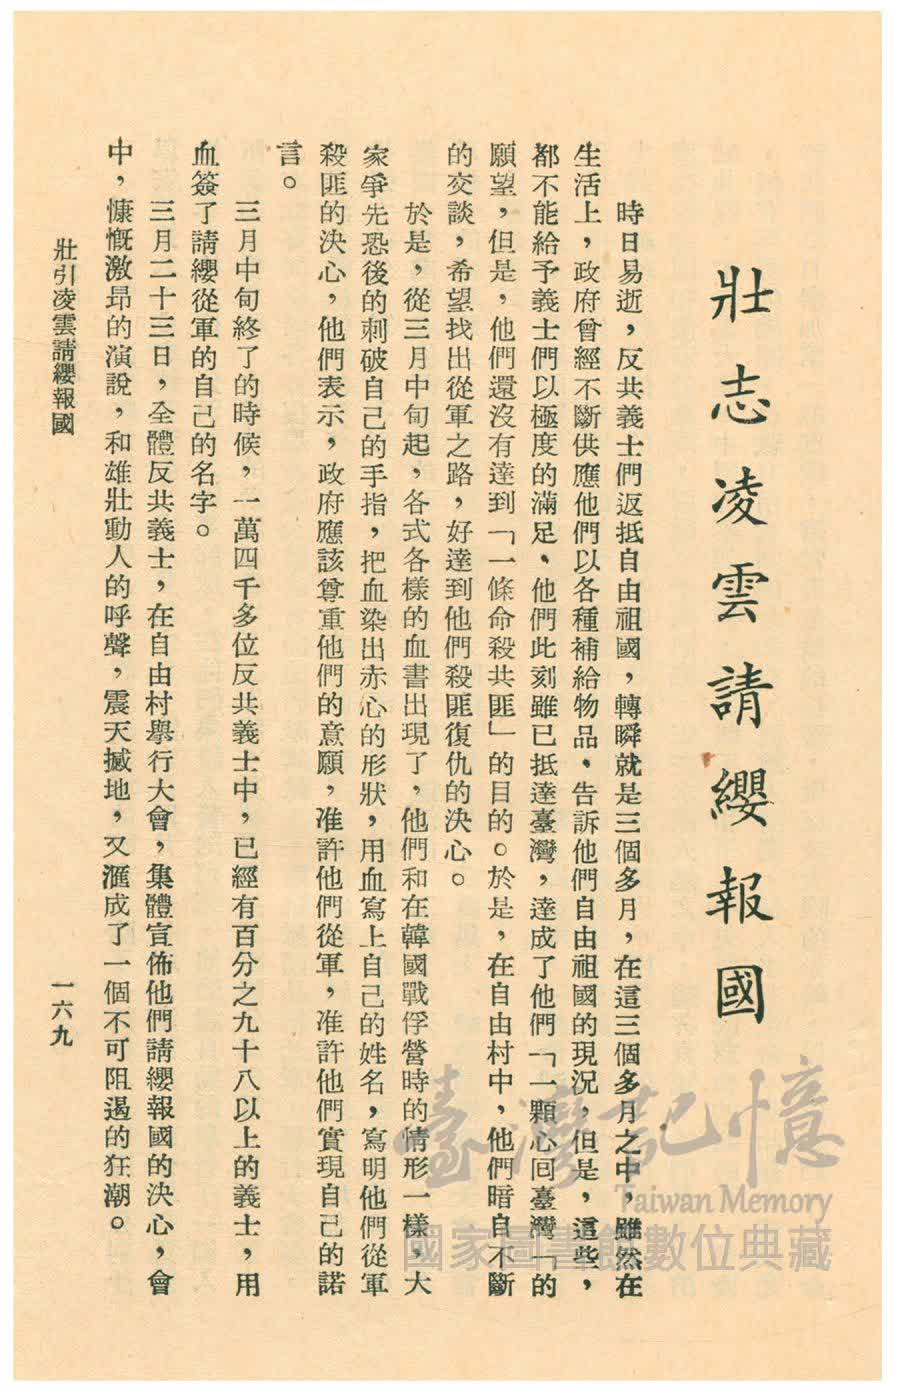 壯志凌雲請纓報國
時日易逝，反共義士們返抵自由祖國，轉瞬就是三個多月，在這三個多月之中，雖然在
生活上，政府曾經不斷供應他們以各種補給物品、告訴他們自由祖國的現況，但是，這些，
都不能給予義士們以極度的滿足、他們此刻雖已抵達臺灣，達成了他們「一顆心回臺灣「的
願望，但是，他們還沒有達到「一條命殺共匪」的目的。於是，在自由村中，他們暗自不斷
的交談，希望找出從軍之路，好達到他們殺匪復仇的決心。
於是，從三月中旬起，各式各樣的血書出現了，他們和在韓國戰俘營時的情形一樣，大
家爭先恐後的刺破自己的手指，把血染出赤心的形狀，用血寫上自己的姓名，寫明他們從軍
殺匪的決心，他們表示，政府應該尊重他們的意願，准許他們從軍，准許他們實現自己的諾
言。
三月中旬終了的時候，一萬四千多位反共義士中，已經有百分之九十八以上的義士，用
血簽了請纓從軍的自己的名字。
三月二十三日，全體反共義士，在自由村舉行大會，集體宣佈他們請纓報國的決心，會
中，慷慨激昂的演說，和雄壯動人的呼聲，震天撼地，又滙成了一個不可阻遏的狂潮。
壯引凌雲請纓報國
一六九
臺灣記憶
Taiwan Memory
國家圖書館數位典藏